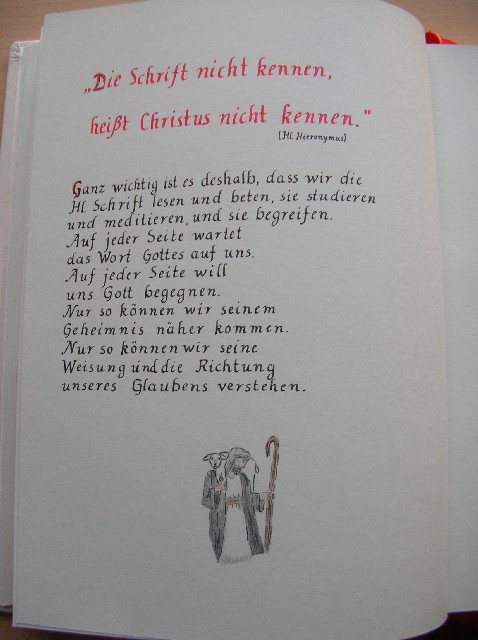 „Die Schrift nicht kennen,
heißt Christus nicht kennen."
(Hl. Hieronymus)
Ganz wichtig ist es deshalb, dass wir die
Hl. Schrift lesen und beten, sie studieren
und meditieren, und sie begreifen.
Auf jeder Seite wartet
das Wort Gottes auf uns.
Auf jeder Seite will
uns Gott begegnen.
Nur so können wir seinem
Geheimnis näher kommen.
Nur so können wir seine
Weisung und die Richtung
unseres Glaubens verstehen.